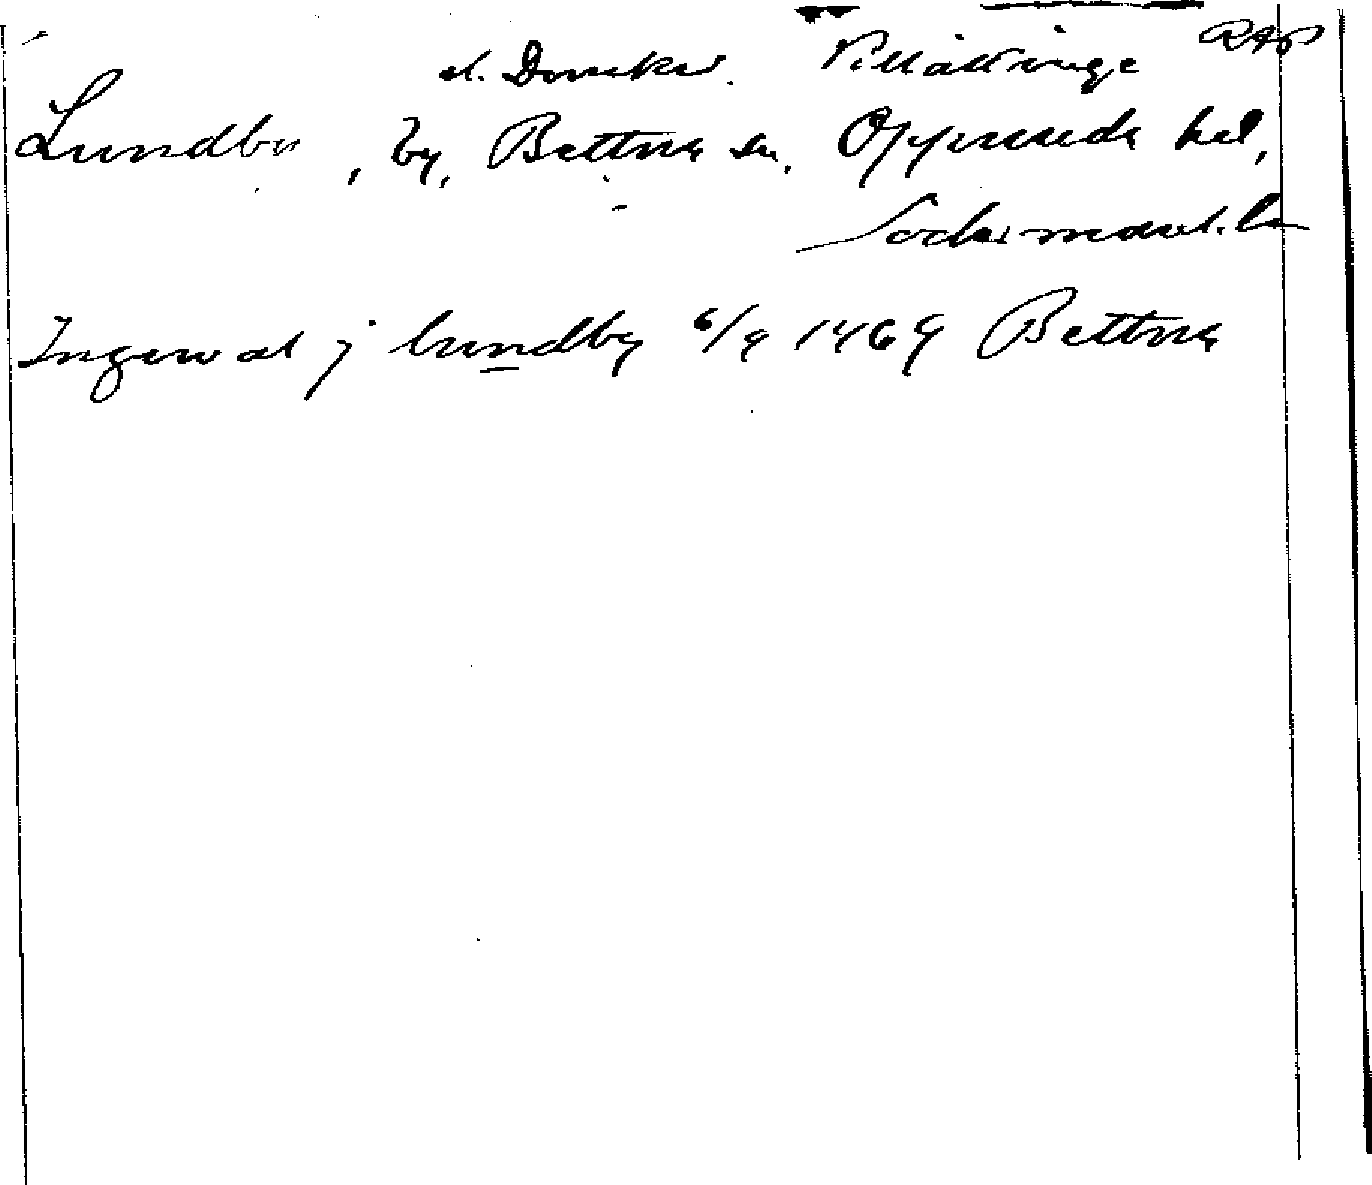 Villåttinge RAp
Lundby, by, Bettna sn, Oppunda hd,
Södermanl. län
Ingewal j lundby 6/9 1469 Bettna